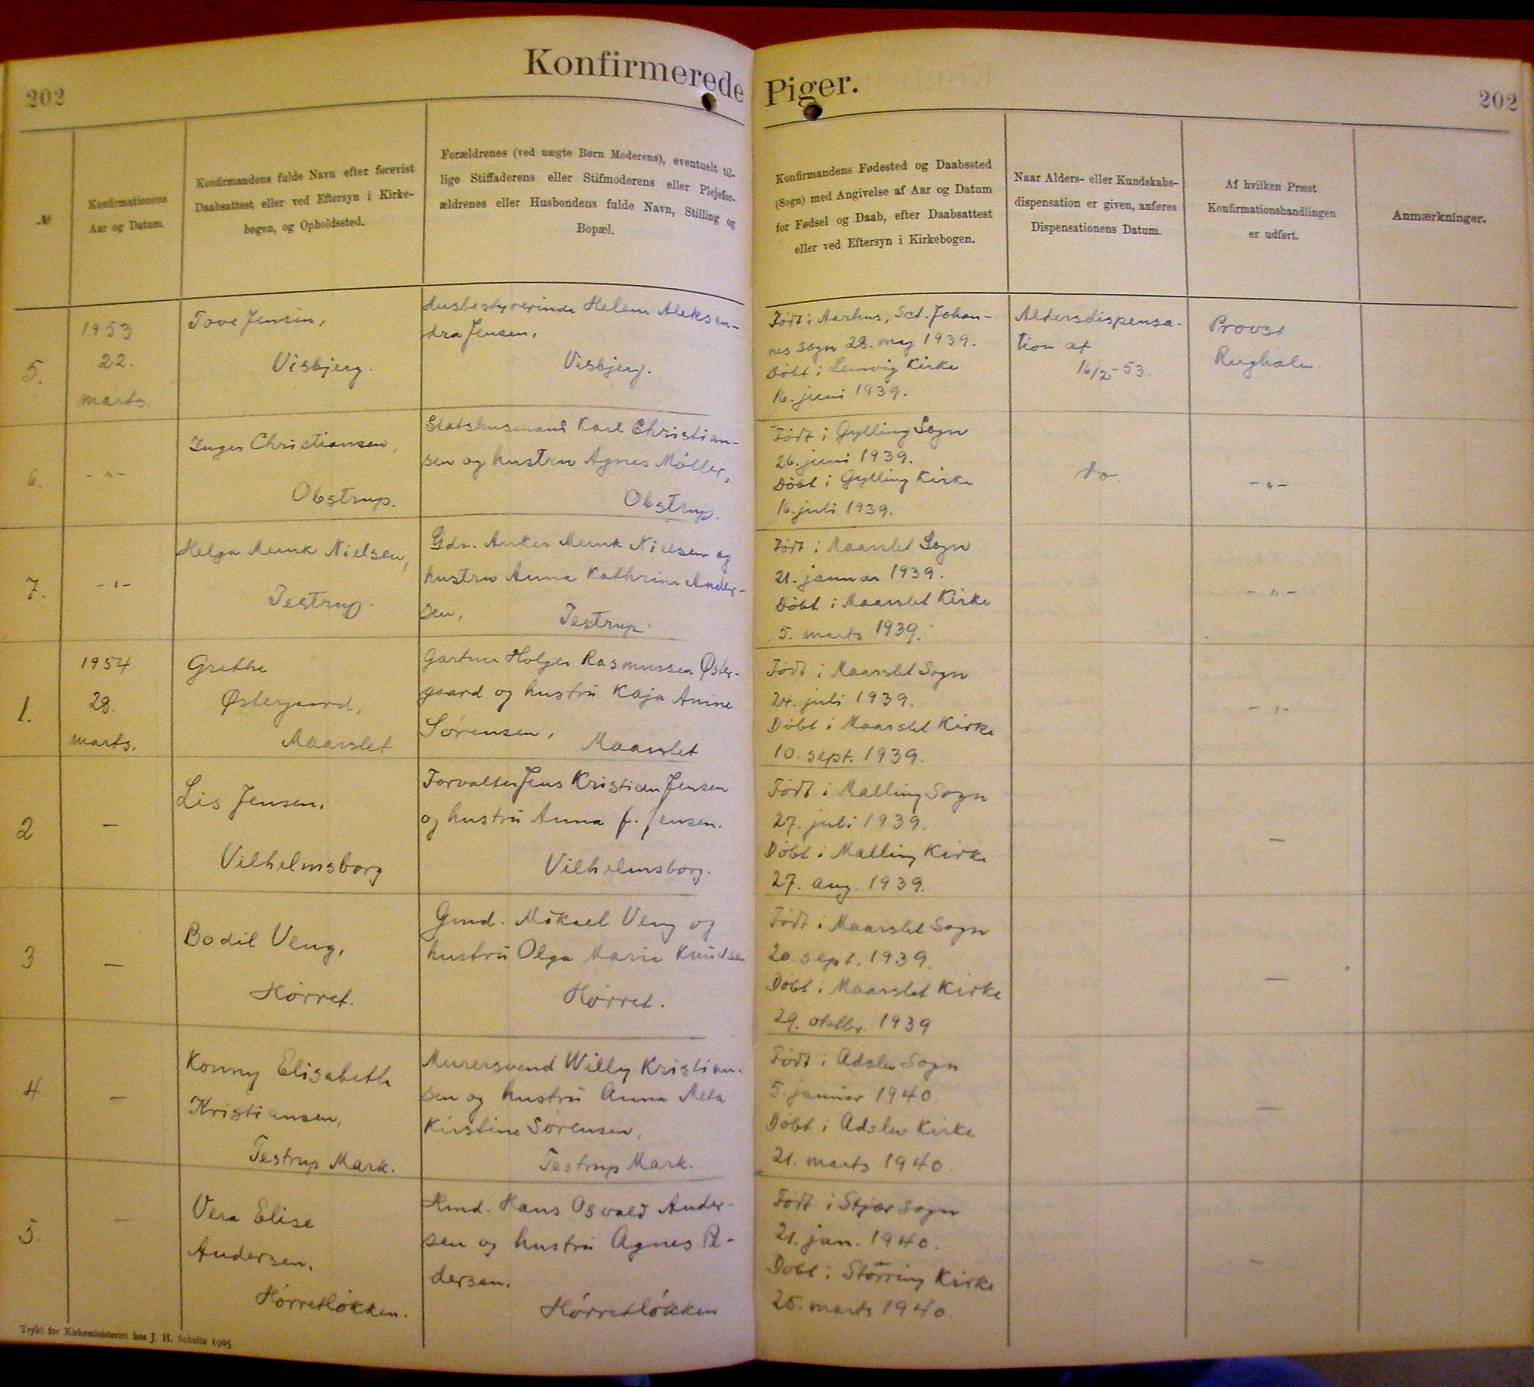 202
Konfirmerede Piger.
202
№
Konfirmationens
Aar og Datum.
Konfirmandens fulde Navn efter forevist
Daabsattest eller ved Eftersyn i Kirke-
bogen, og Opholdssted.
Forældrenes (ved uægte Børn Moderens), eventuelt til-
lige Stiffaderens eller Stifmoderens eller Plejefor-
ældrenes eller Husbondens fulde Navn, Stilling og
Bopæl.
Konfirmandens Fødested og Daabssted
(Sogn) med Angivelse af Aar og Datum
for Fødsel og Daab, efter Daabsattest
eller ved Eftersyn i Kirkebogen.
Naar Alders- eller Kundskabs-
dispensation er given, anføres
Dispensationens Datum.
Af hvilken Præst
Konfirmationshandlingen
er udført.
Anmærkninger.
5.
1953
22.
marts.
Tove Jensen,
Visbjerg.
Husbestyrerinde Helene Aleksan-
dra Jensen,
Visbjerg.
Født i Aarhus, Sct. Johan-
nes Sogn 28. maj 1939.
Døbt i Lemvig Kirke
16. juni 1939.
Aldersdispensa-
tion af
16/2-53.
Provst
Rugholm
6.
-"-
Inger Christiansen,
Obstrup.
Statshusmand Karl Christian-
sen og hustru Agnes Møller,
Obstrup.
Født i Gylling Sogn
26. juni 1939.
Døbt i Gylling Kirke
16. juli 1939.
do
-"-
7.
-"-
Helga Munk Nielsen,
Testrup.
Gdr. Anker Munk Nielsen og
hustru Anna Kathrine Ander-
sen, Testrup.
Født i Maarslet Sogn
21. januar 1939.
Døbt i Maarslet Kirke
5. marts 1939.
-"-
1.
1954
28.
marts.
Grethe
Østergaard,
Maarslet
Gartner Holger Rasmussen Øster-
gaard og hustru Kaja Anine
Sørensen, Maarslet
Født i Maarslet Sogn
24. juli 1939.
Døbt i Maarslet Kirke
10. sept. 1939.
-"-
2
—
Lis Jensen,
Vilhelmsborg
Forvalter Jens Kristian Jensen
og hustru Anna f. Jensen.
Vilhelmsborg.
Født i Malling Sogn
27. juli 1939.
Døbt i Malling Kirke
27. aug. 1939.
—
3
—
Bodil Veng,
Hørret.
Gmd. Mikael Veng og
hustru Olga Marie Knudsen
Hørret.
Født i Maarslet Sogn
20. sept. 1939.
Døbt i Maarslet Kirke
29. oktbr. 1939
—
4
—
Konny Elisabeth
Kristiansen,
Testrup Mark.
Murersvend Willy Kristian-
sen og hustru Anna Meta
Kirstine Sørensen,
Testrup Mark.
Født i Adslev Sogn
5. januar 1940
Døbt i Adslev Kirke
21. marts 1940.
—
5.
—
Vera Elise
Andersen,
Hørretløkken.
Hmd. Hans Osvald Ander-
sen og hustru Agnes Pe-
dersen.
Hørretløkken
Født i Stjær Sogn
21. jan. 1940.
Døbt i Störring Kirke
25. marts 1940.
—
Trykt for Kirkeministeriet hos J. H. Schultz 1905